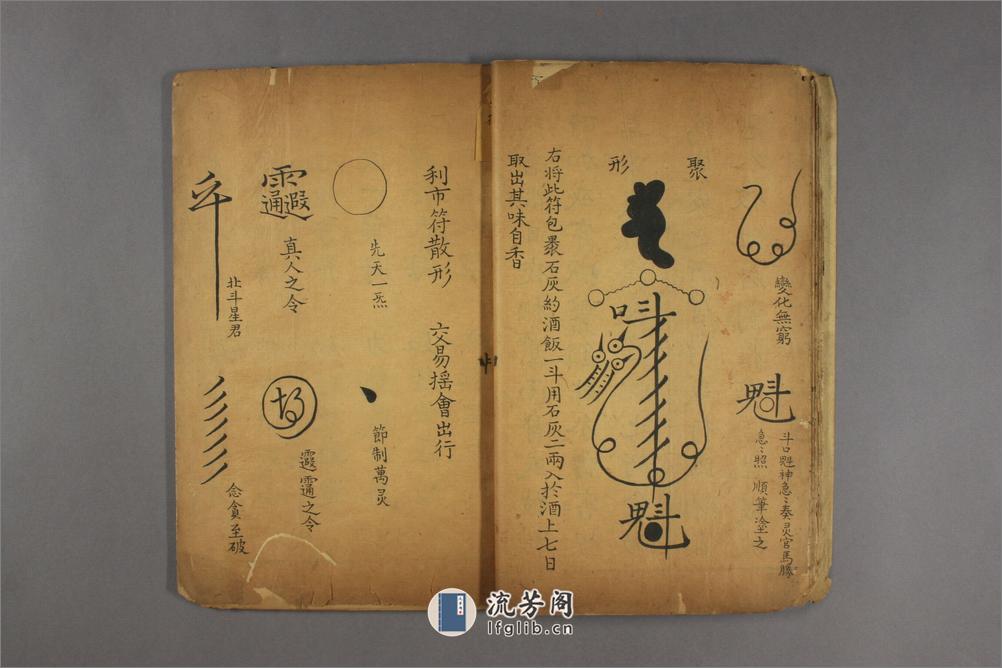 變化無窮
魁
斗口魁神急〻奏灵官馬勝
急〻照 順筆塗之
聚形
魁
右將此符包裹石灰約酒飯一斗用石灰二兩入於酒上七日
取出其味自香
利市符散形 交易摇會出行
先天一炁
節制萬灵
真人之令
霞靊之令
北斗星君
念貪至破
流芳阁
lfglib.cn